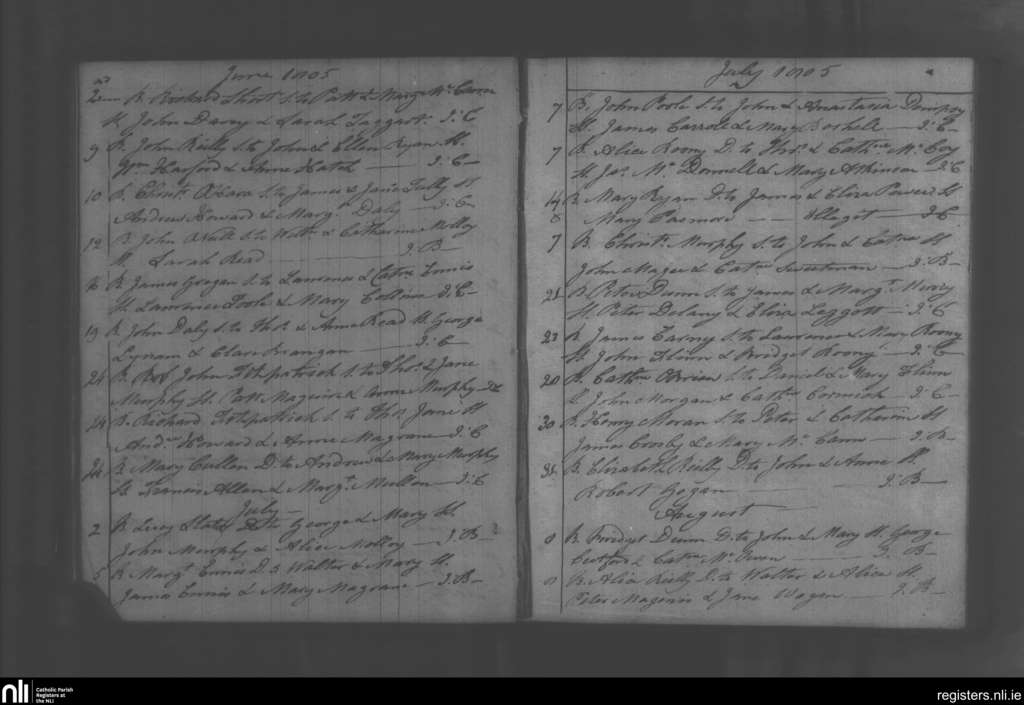 June 1805
2nd B. Richard Short S. to Patt & Mary Mc Cann
St. John Davey & Sarah Taggart. J:C
9 B. John Reilly S. to John & Ellen Ryan St.
Wm. Harford & Anne Hatch — J:C—
10 B. Christr. O'Hara S. to James & Jane Tully St
Andrew Howard & Margt. Daly — J:C—
12 B. John Neill S. to Willm. & Catharine Molloy
St. Sarah Read — J:B—
16 B. James Grogan S. to Lawrence & Cathne Ennis
St. Lawrence Toole & Mary Collins J:C—
19 B. John Daly S. to Thos. & Anne Read St. George
Lynam & Clare — J:C—
24 B. John Fitzpatrick S. to Thos. & Jane
Murphy St. Patt. Maginis & Anne Murphy J:C
24 B. Richard Fitzpatrick S. to Thos. Jane St
Andw. Howard & Anne Magrane J:C
24 B. Mary Cullen D. to Andrew & Mary Murphy
St. Francis Allen & Margt. Mullen — J:C
July —
2 B. Lucy Slator D. to George & Mary St
John Murphy & Alice Molloy — J:B—
5 B. Margt. Ennis D. to Walter & Mary St.
James Ennis & Mary Magrane — J:B—
July 1805
7 B. John Poole S. to John & Anastasia Dempsey
St. James Carroll & Mary — J:C—
7 B. Alice Roony D. to Thos. & Cathne Mc Coy
St. Jas. Mc Donnell & Mary Atkinson — J:C
14 B. Mary Ryan D. to James & Elira Powers St
& Mary Pasmore — Illegit — J:C
7 B. Christr. Murphy S. to John & Cathne St
John Magee & Cathne Sweetman — J:B—
21 B. Peter Dunn S. to James & Margt.
St. Peter Delany & Eliza Leggett — J:C
23 B. James S. to Lawrence & Mary Roony
St. John Flinn & Bridget Roony — J:C
28 B. Cathne OBrien S. to Daniel & Mary Flinn
St. John Morgan & Cathne Cormick — J:C—
30 B. Henry Moran S. to Peter & Catherine St
James Crosby & Mary Mc Cann — J:B—
31 B. Elizabeth Reilly D. to John & Anne St.
Robert Gogan — J:B—
August —
8 B. Bridget Dunn D. to John & Mary St. George
& Cathne Mc Owen — J:B—
8 B. Alice Reilly D. to Walter & Alice St.
Peter Maginis & Jane Wogan — J.B—
nli
Catholic Parish
Registers at
the NLI
registers.nli.ie